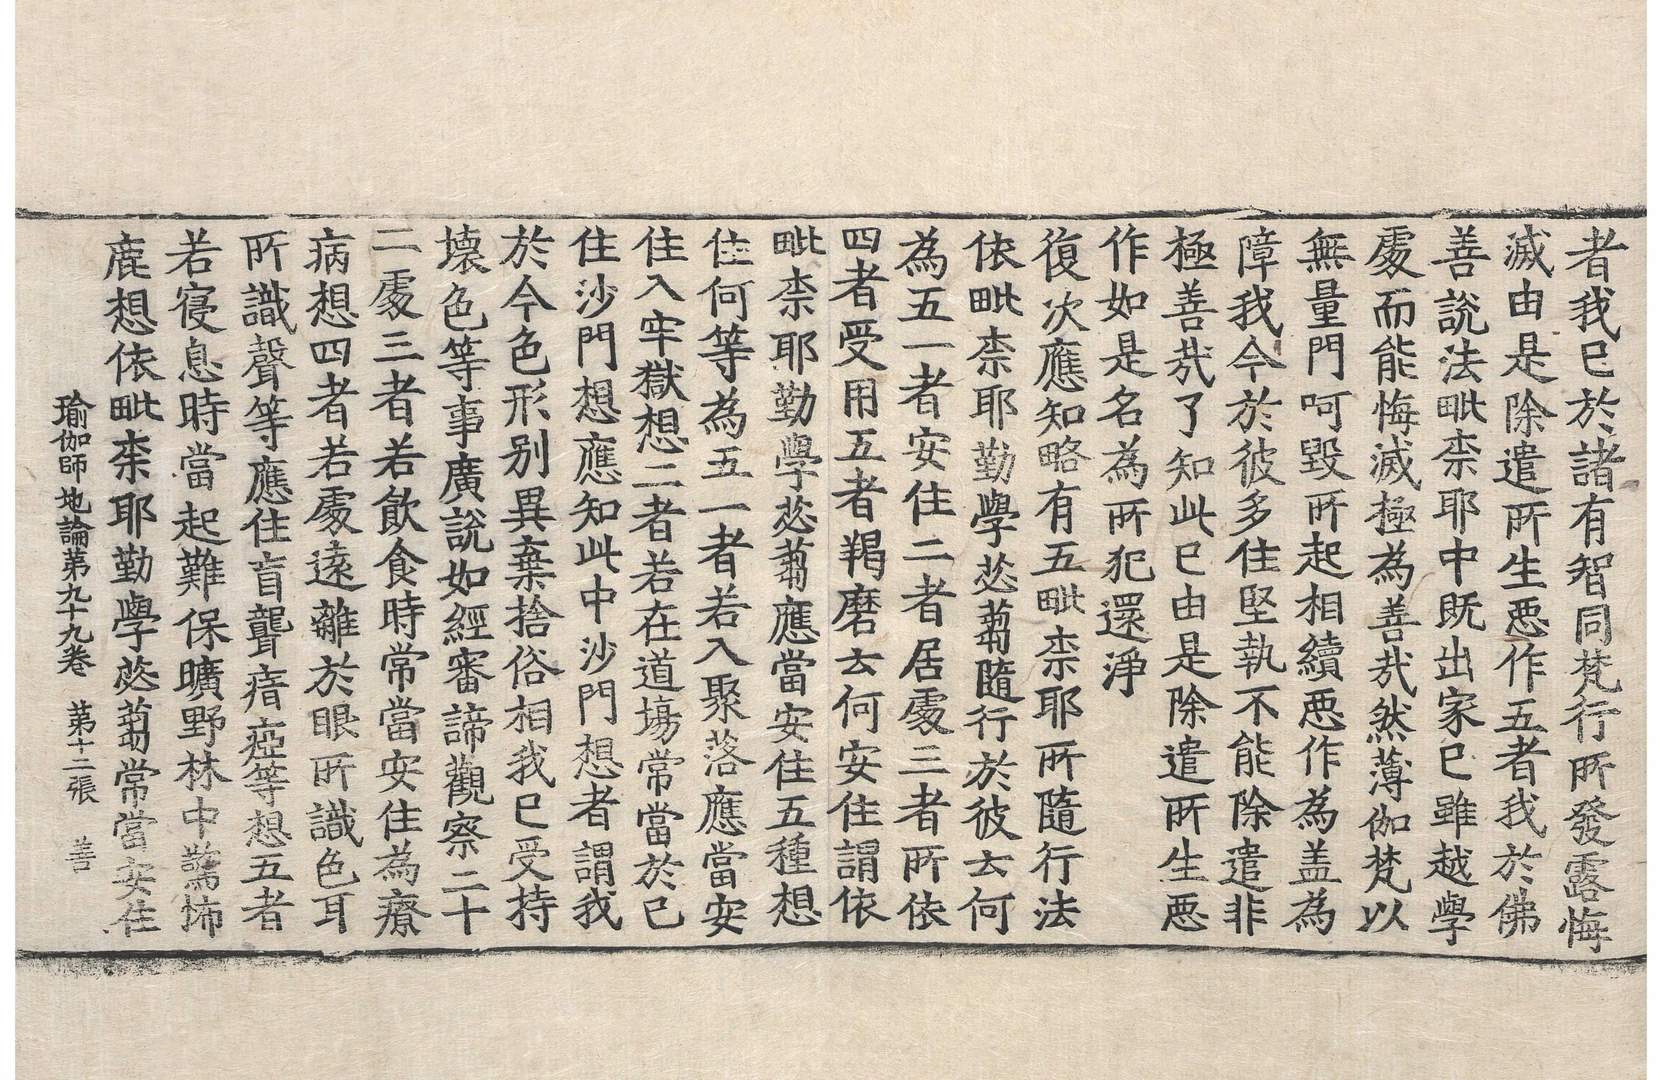 者我已於諸有智同梵行所發露悔
滅由是除遣所生惡作五者我於佛
善說法毗柰耶中既出家已雖越學
處而能悔滅極為善哉然薄伽梵以
無量門呵毀所起相續惡作為盖為
障我今於彼多住堅執不能除遣非
極善哉了知此已由是除遣所生惡
作如是名為所犯還淨
復次應知略有五毗柰耶所隨行法
依毗柰耶勤學苾蒭隨行於彼云何
為五一者安住二者居處三者所依
四者受用五者羯磨云何安住謂依
毗柰耶勤學苾蒭應當安住五種想
住何等為五一者若入聚落應當安
住入牢獄想二者若在道場常當於己
住沙門想應知此中沙門想者謂我
於今色形別異棄捨俗相我已受持
壞色等事廣說如經審諦觀察二十
二處三者若飲食時常當安住為療
病想四者若處遠離於眼所識色耳
所識聲等應住盲聾瘖瘂等想五者
若寑息時當起難保曠野林中驚怖
鹿想依毗柰耶勤學苾蒭常當安住
瑜伽師地論第九十九卷 第十二張 善